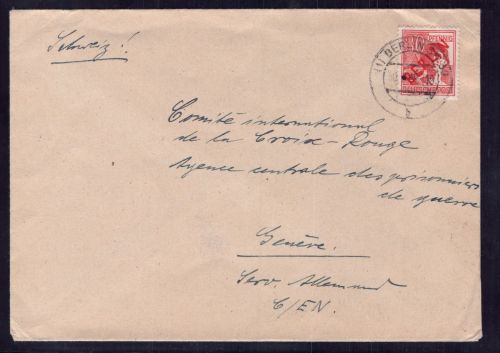 Schweiz!
BERLIN
PFENNIG
BERLIN
DEUTSCHE POST
b
Comité international
de la Croix-Rouge
Agence centrale des prisonniers
de guerre
Genève.
Serv. Allemand
C/EN.